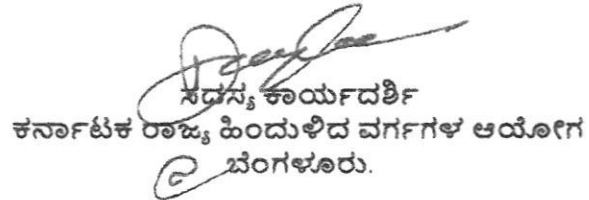 ಸದಸ್ಯ ಕಾರ್ಯದರ್ಶಿ
ಕರ್ನಾಟಕ ರಾಜ್ಯ ಹಿಂದುಳಿದ ವರ್ಗಗಳ ಆಯೋಗ
ಬೆಂಗಳೂರು.